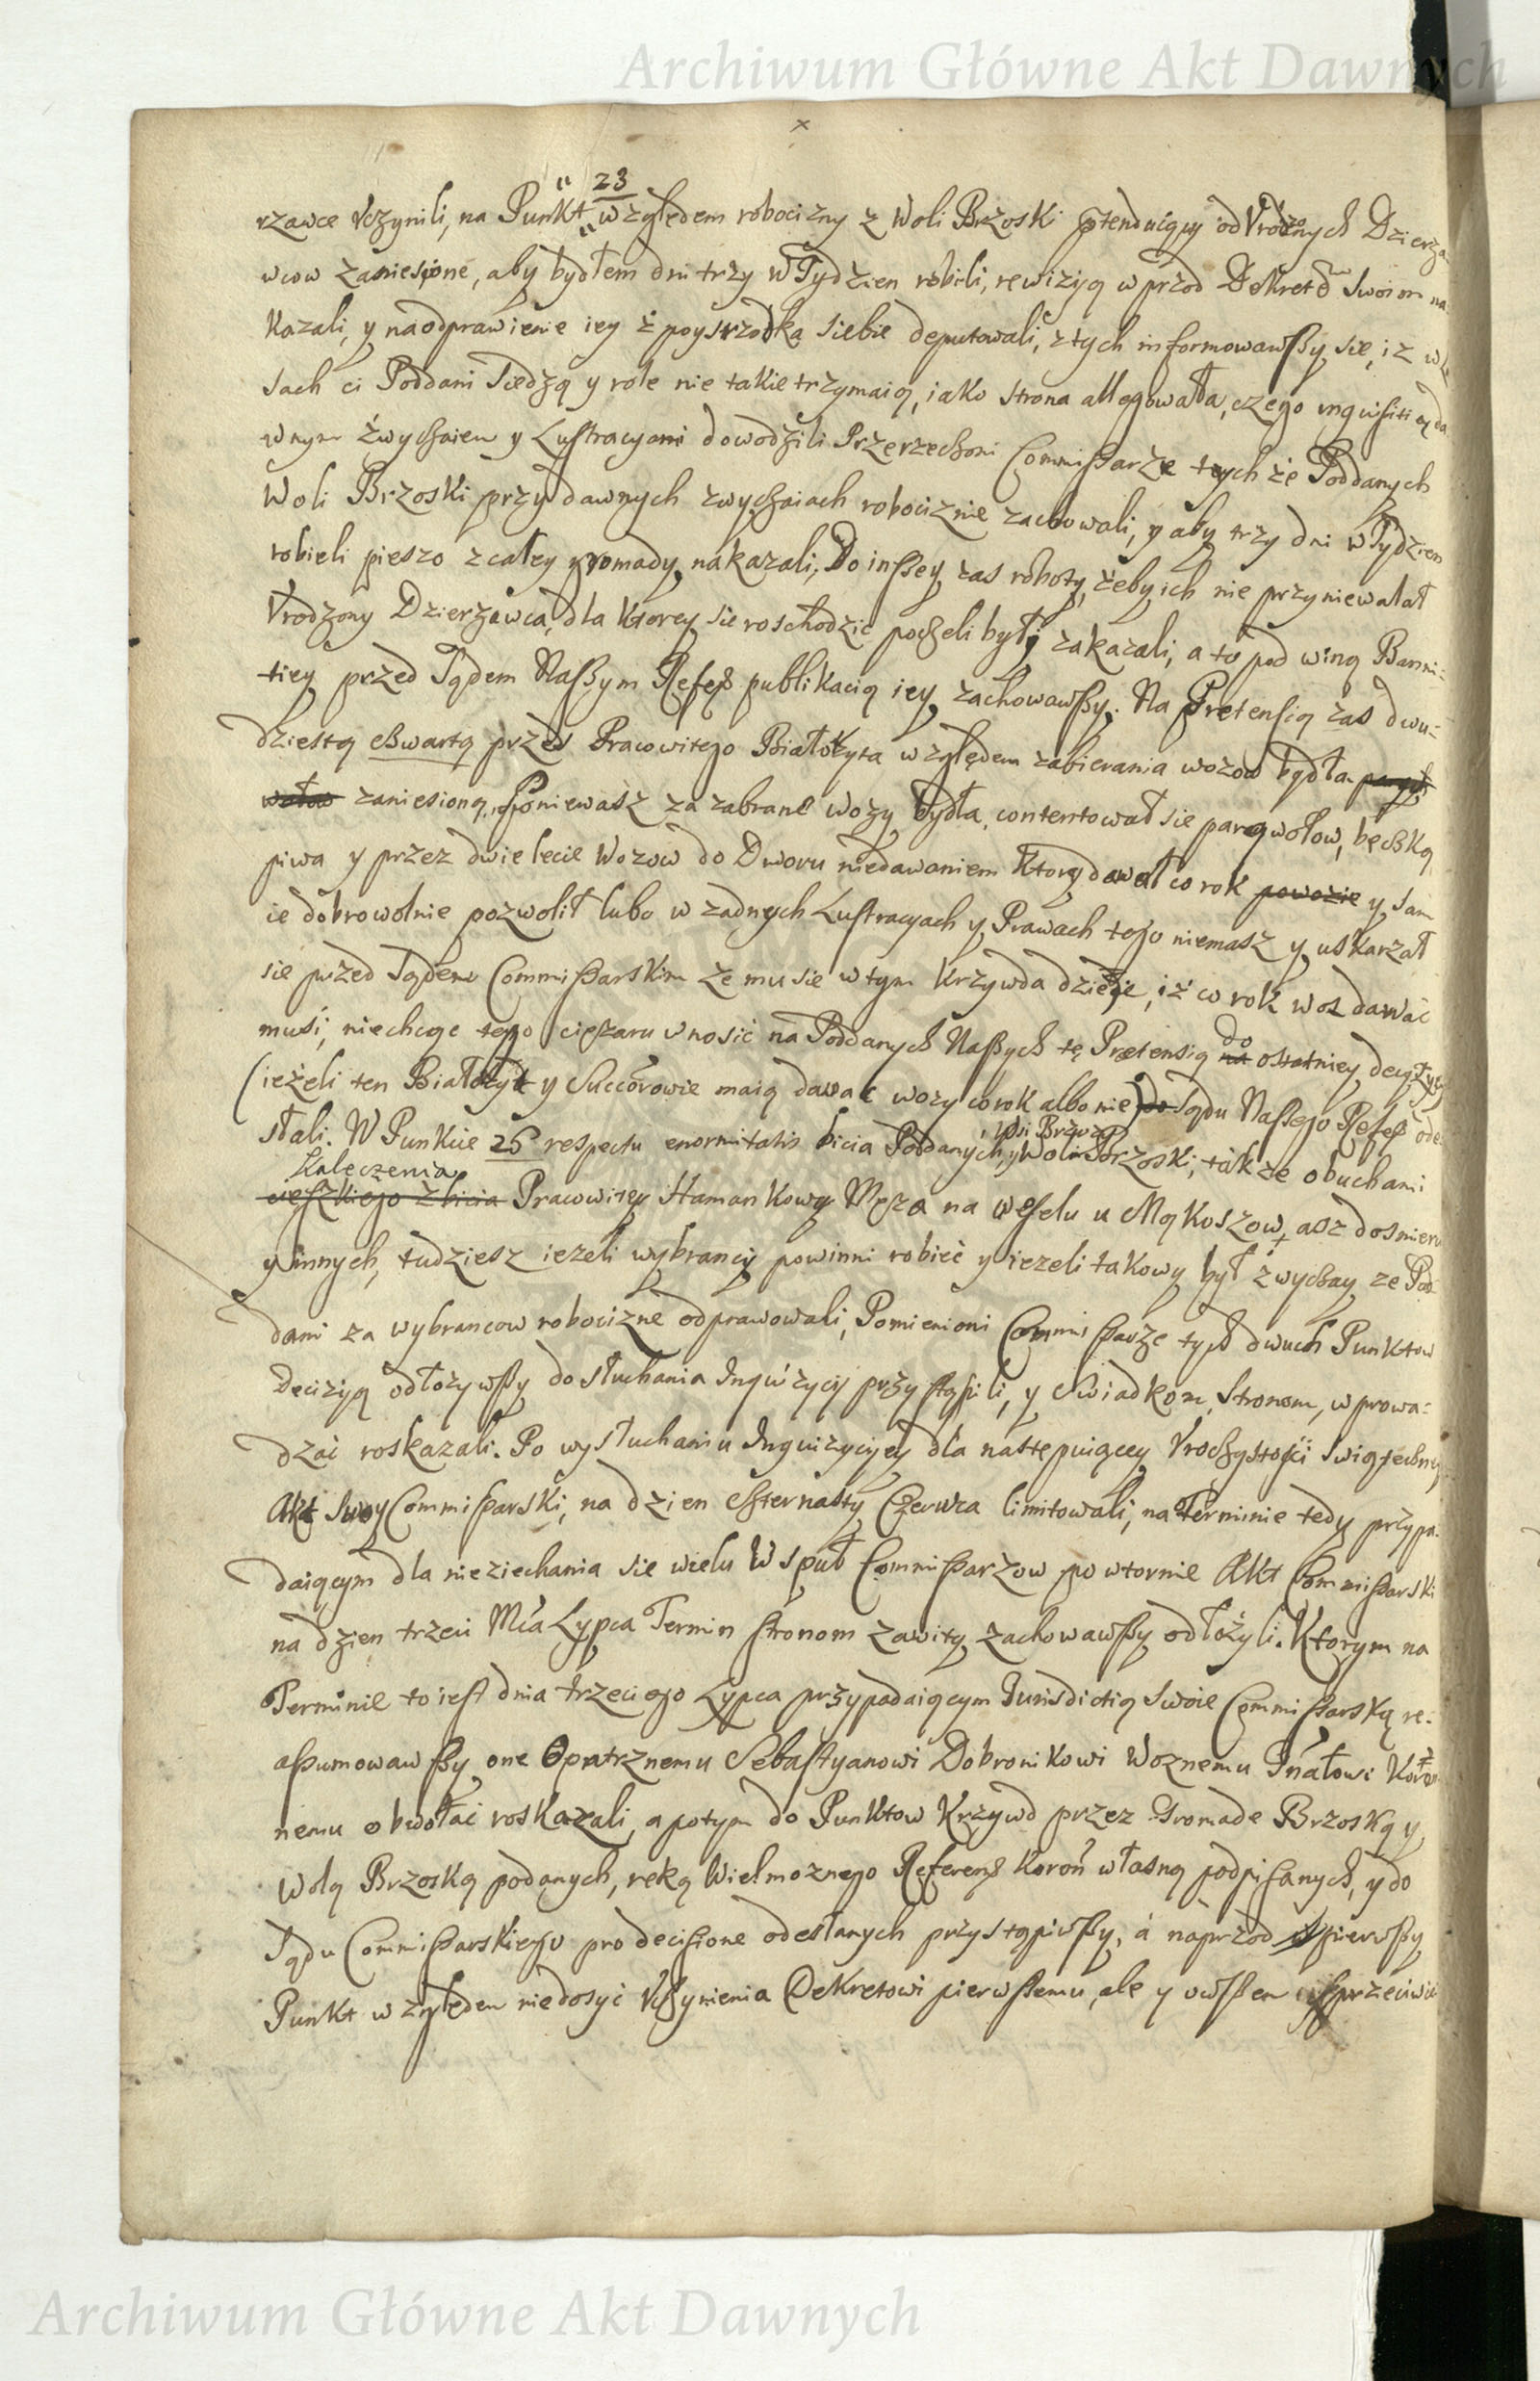 Archiwum Główne Akt Dawnych
23
rzawce Vczynili, na Punkt względem robocizny z Woli Brzoski ptenduiący od Vrodzonych Dzierza
wcow zaniesione, aby bydłem dni trzy w Tydzien robili, rewizyą w przod Dekretem Swoim na
kazali, y na odprawienie iey z poystrzodka siebie deputowali, z tych informowawszy sie, iz w
sach ci Poddani siedzą y role nie takie trzymaią, iako strona allegowała, czego
wnym zwyczaiem y Lustracyami dowodzili Przerzeczoni Commissarze tych ze Poddanych
Woli Brzoski przy dawnych zwyczaiach robociznie zachowali, y aby trzy dni w Tydzien
robieli pieszo z całey gromady, nakazali, Do inszey zas roboty, żeby ich nie przyniewalał
Vrodzony Dzierzawca, dla ktorey sie roschodzić poczeli byli zakazali, a to pod winą Banni=
tiey przed Sądem Naszym Refer publikacią iey zachowawszy. Na Pretensią zas dwu=
dziestą czwartą przez Pracowitego Białokyta względem zabierania wozow bydła
wołow zaniesioną, Poniewasz za zabrane wozy bydła, contentował sie parą wołow, beczką
piwa y przez dwie lecie Wozow do Dworu niedawaniem Ktory dawał co rok powozie y sam
ie dobrowolnie pozwolił lubo w zadnych Lustracyach y Prawach tego niemasz y uskarzał
sie przed Sądem Commissarskim ze mu sie w tym krzywda dzieie, iż co rok woz dawać
musi, niechcąc tego cięzaru vnosić na Poddanych Naszych tę Prætensią na do ostatniey decyzyi
(ieżeli ten Białokyt y Succorowie maią dawać wozy co rok albo nie) do Sądu Naszego Refer ode
słali. W Punkcie 25 respectu enormitatis bicia Poddanych, Wsi Brzozy y Woli Brzoski, także obuchami
Kaleczenia
cieszkiego zbicia Pracowitey Hamankowy Męza na weselu u Mąkoszow, asz do smierci
y innych, tudziesz iezeli wybrancy powinni robieć y iezeli takowy był zwyczay ze Pod
dami za wybrancow robocizne odprawowali, Pomienioni Commissarze tych dwuch Punktow
Decizyą odłozywszy do słuchania Inquizycij przystąpili, y Swiadkom, Stronom, wprowa=
dzać roskazali. Po wysłuchaniu Inquizycyiey dla nastempuiącey Vroczystości Swiąteczney
Akt Swoy Commissarski, na dzien czternasty Czerwca limitowali, na Terminie tedy przypa=
daiącym dla nieziechania sie wielu Wspuł Commissarzow powtornie Akt Commissarski
na dzien trzeci Mca Lypca Termin stronom zawity zachowawszy odłożyli. Ktorym na
Terminie to iest dnia trzeciego Lypca przypadaiącym Jurisdictią Swoie Commissarską re=
assumowawszy one Opatrznemu Sebastyanowi Dobronikowi Woznemu Gnałowi Koron
nemu obwołać roskazali, a potym do Punktow Krzywd przez Gromade Brzoską y
Wolą Brzoską podanych, reką Wielmoznego Referend Koron własną podpisanych, y do
Sądu Commissarskiego pro decisione odesłanych przystąpiwszy, á naprzod pierwszy
Punkt względem niedosyć Vczynienia Dekretowi pierwszemu, ale y owszem sprzeciwie
Archiwum Główne Akt Dawnych